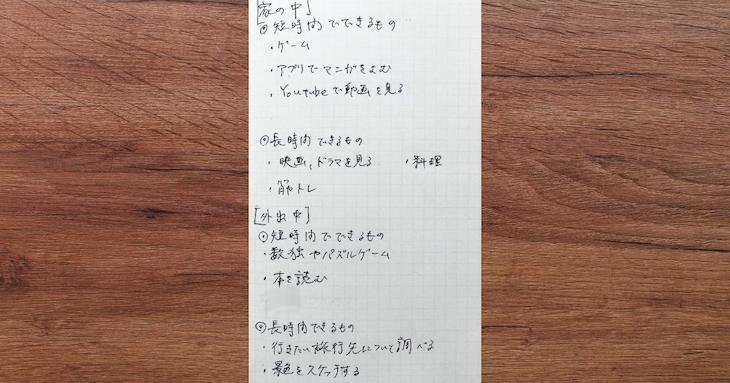 [家の中]
⊙短時間でできるもの
・ゲーム
・アプリでマンガをよむ
・Youtubeで動画を見る
⊙長時間できるもの
・映画、ドラマを見る ・料理
・筋トレ
[外出中]
⊙短時間でできるもの
・数独やパズルゲーム
・本を読む
⊙長時間できるもの
・行きたい旅行先について調べる
・景色をスケッチする